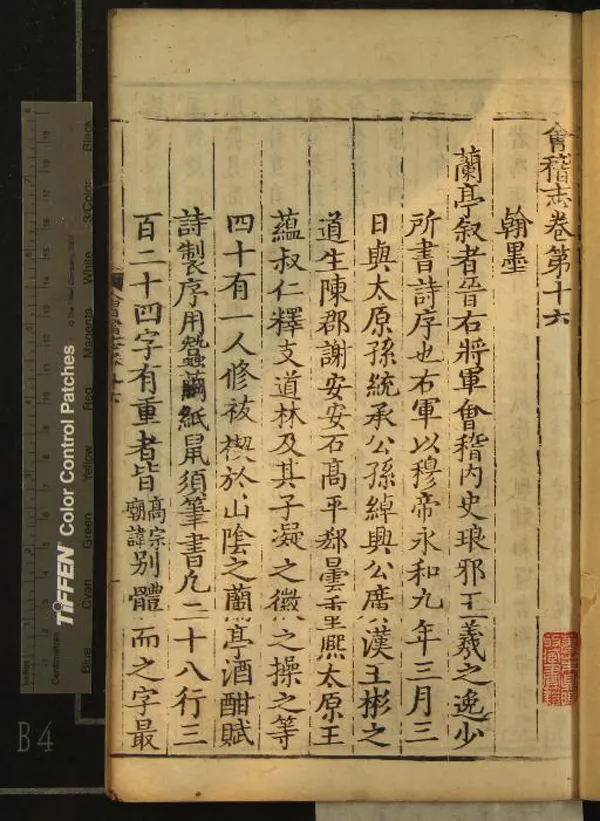 會稽志卷第十六
翰墨
蘭亭叙者晉右將軍會稽内史琅邪王羲之逸少
所書詩序也右軍以穆帝永和九年三月三
日與太原孫統承公孫綽興公廣漢王彬之
道生陳郡謝安安石高平郄曇重熙太原王
蘊叔仁釋支道林及其子凝之徽之操之等
四十有一人修祓禊於山陰之蘭亭酒酣賦
詩製序用蠶繭紙鼠須筆書凡二十八行三
百二十四字有重者皆高宗廟諱别體而之字最
TIFFEN Color Control Patches
Blue Cyan Green Yellow Red Magenta White 3/Color Black
Centimetres
B4